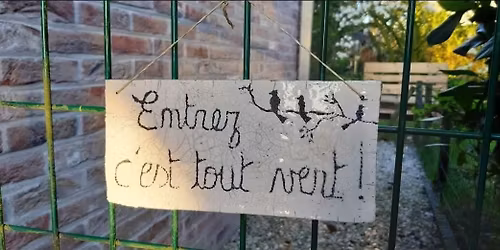 Entrez
c'est tout vert !